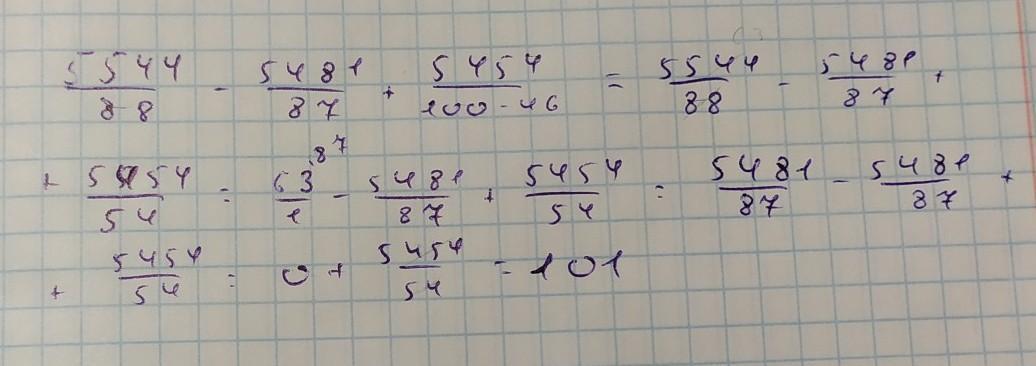 5544/88 - 5481/87 + 5454/100-46 = 5544/88 - 5481/87 +
+ 5454/54 = 63/1 ·87 - 5481/87 + 5454/54 = 5481/87 - 5481/87 +
+ 5454/54 = 0 + 5454/54 = 101